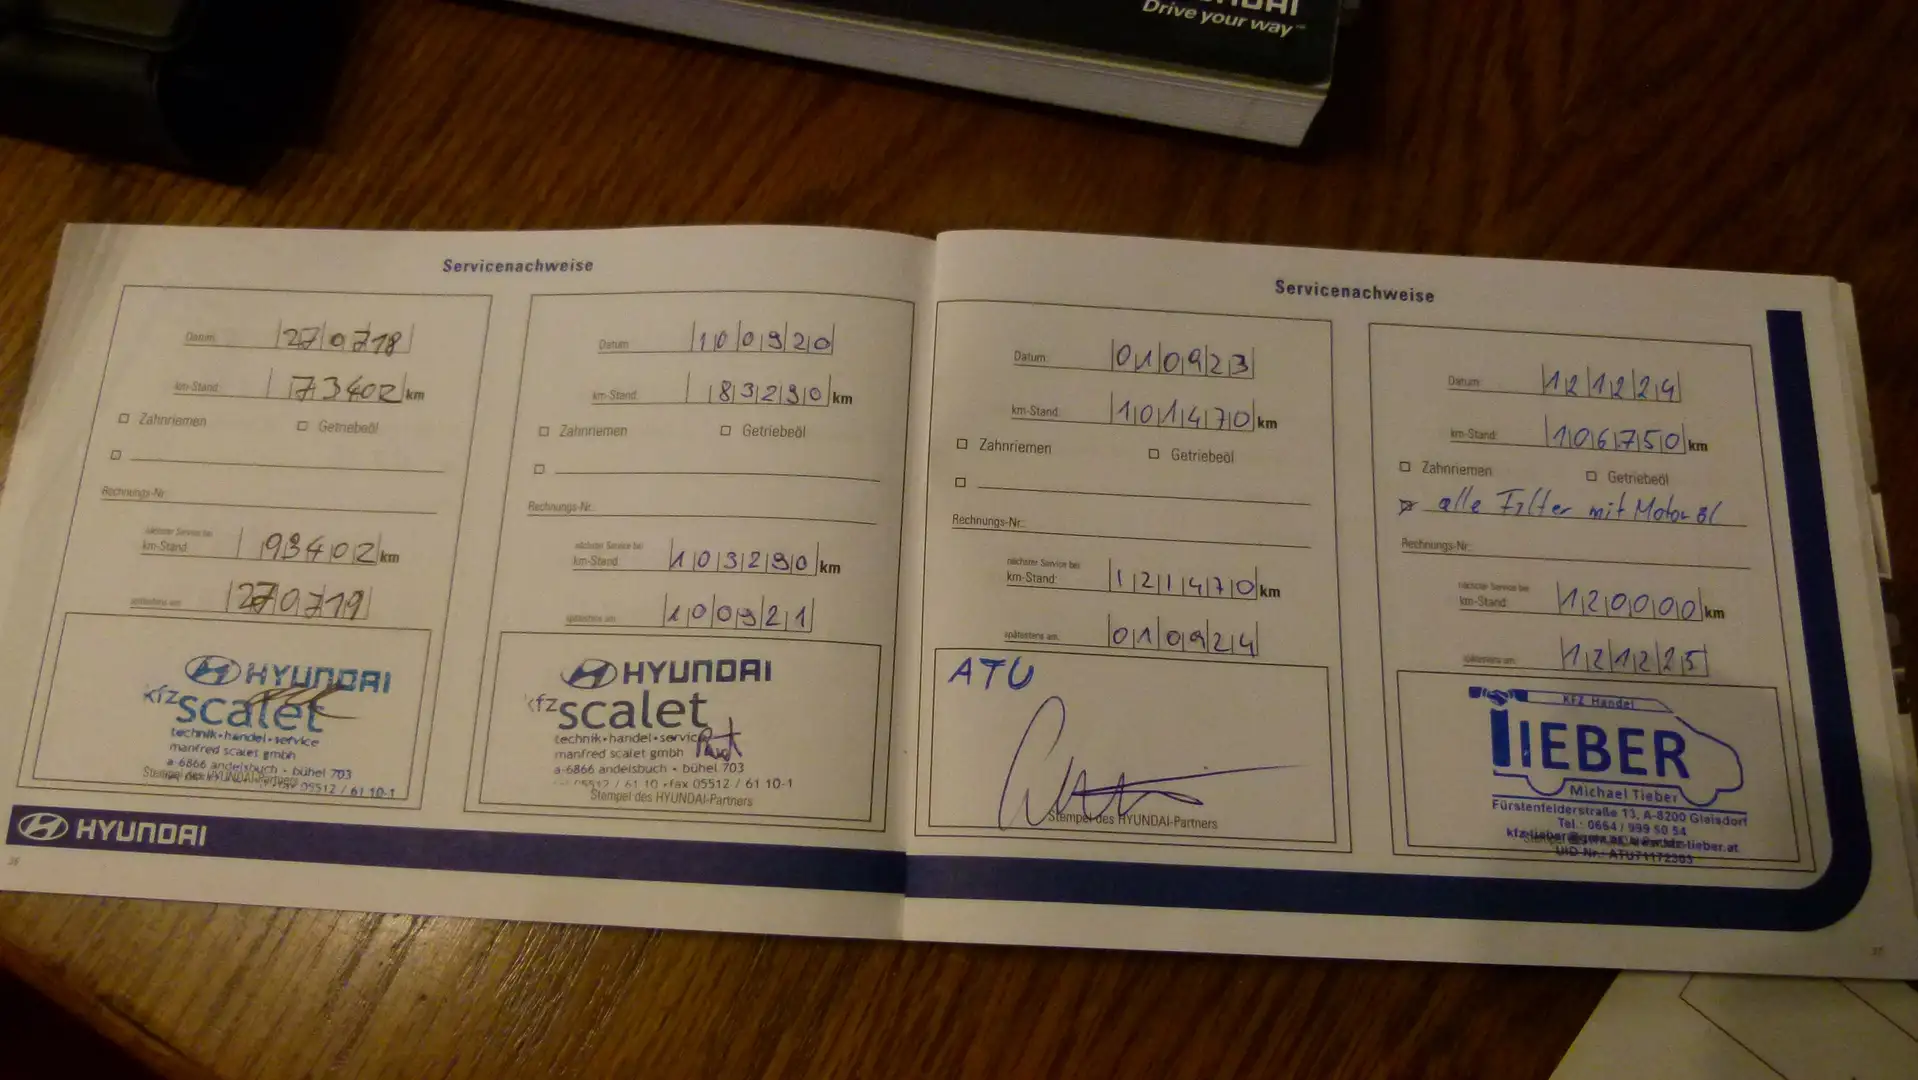 HYUNDAI
Drive your way™
Servicenachweise
Datum: 270718
km-Stand: 73402 km
Zahnriemen
Getriebeöl
Rechnungs-Nr.
nächster Service bei
km-Stand: 93402 km
spätestens am: 270719
HYUNDAI
kfz scalet
technik•handel•service
manfred scalet gmbh
a-6866 andelsbuch • bühel 703
fax 05512 / 61 10-1
Stempel des HYUNDAI-Partners
Datum: 100920
km-Stand: 83290 km
Zahnriemen
Getriebeöl
Rechnungs-Nr.:
nächster Service bei
km-Stand: 103290 km
spätestens am: 100921
HYUNDAI
kfz scalet
technik•handel•service
manfred scalet gmbh
a-6866 andelsbuch • bühel 703
05512 / 61 10 •fax 05512 / 61 10-1
Stempel des HYUNDAI-Partners
HYUNDAI
36
Servicenachweise
Datum: 010923
km-Stand: 101470 km
Zahnriemen
Getriebeöl
Rechnungs-Nr.:
nächster Service bei
km-Stand: 121470 km
spätestens am: 010924
ATU
Stempel des HYUNDAI-Partners
Datum: 121224
km-Stand: 106750 km
Zahnriemen
Getriebeöl
alle Filter mit Motoröl
Rechnungs-Nr.:
nächster Service bei
km-Stand: 120000 km
spätestens am: 121225
Kfz Handel
TIEBER
Michael Tieber
Fürstenfelderstraße 13, A-8200 Gleisdorf
Tel.: 0664 / 999 50 54
UID-Nr.: ATU71172303
37